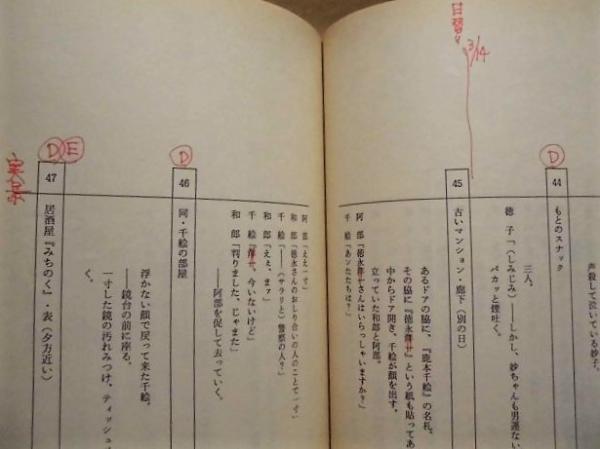 声殺して泣いている紗子。
Ⓓ
44
もとのスナック
三人。
徳子「(しみじみ)――しかし、紗ちゃんも男運ない
パカッと煙吐く。
日替り
3/14
45
古いマンション・廊下(別の日)
あるドアの脇に、『鹿本千絵』の名札。
その脇に『徳永』という紙も貼ってあ
中からドア開き、千絵が顔を出す。
立っていた和郎と阿部。
阿部「徳永さんはいらっしゃいますか?」
千絵「あンたたちは?」
阿部「ええ一寸」
和郎「徳永さんのお知り合いの人のことで一寸」
千絵「――(サラリと)警察の人?」
和郎「ええ、まァ」
千絵「今いないけど」
和郎「判りました、じゃまた」
――阿部を促して去っていく。
Ⓓ
46
同・千絵の部屋
浮かない顔で戻って来た千絵。
――鏡台の前に座る。
一寸した鏡の汚れみつけ、ティッシュ
く。
Ⓓ Ⓔ
47
居酒屋『みちのく』・表(夕方近い)